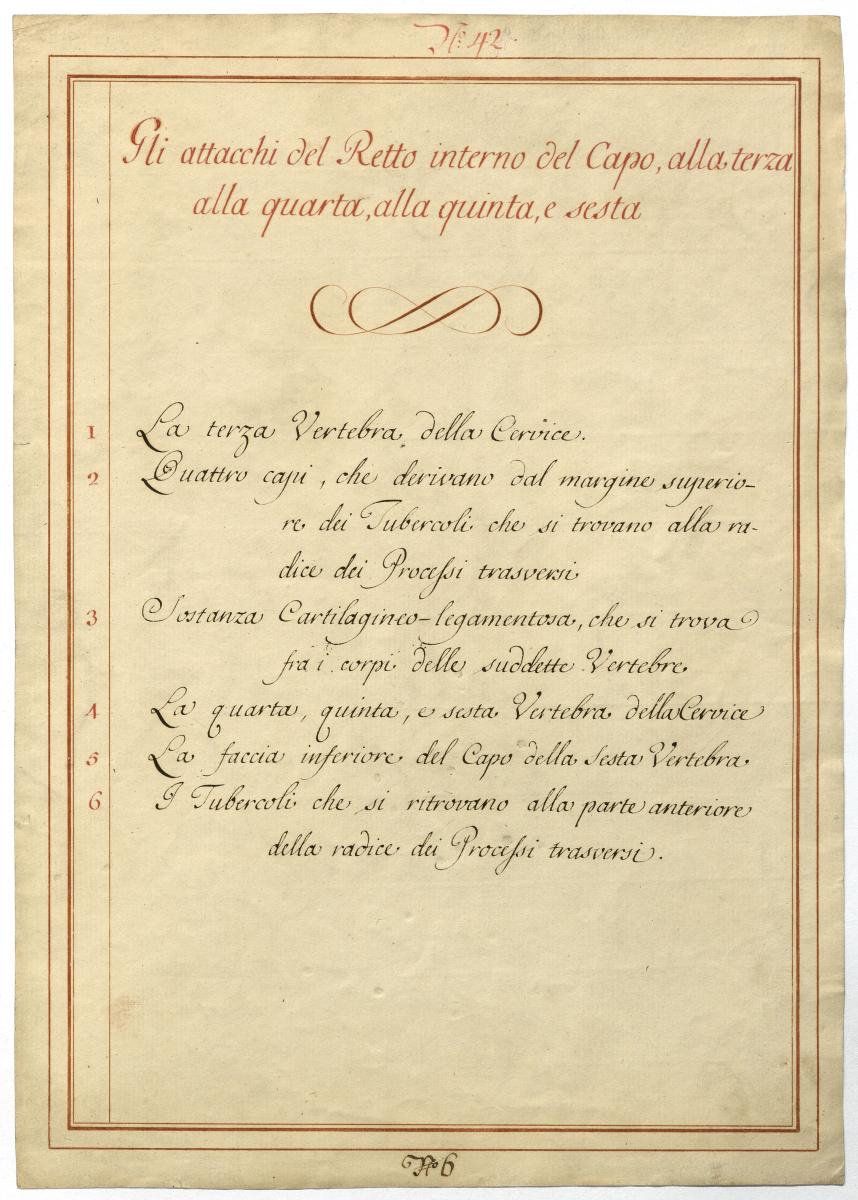 N.º 42.
Gli attacchi del Retto interno del Capo, alla terza
alla quarta, alla quinta, e sesta
1 La terza Vertebra della Cervice.
2 Quattro capi, che derivano dal margine superio-
re dei Tubercoli che si trovano alla ra-
dice dei Processi trasversi
3 Sostanza Cartilagineo-legamentosa, che si trova
fra i corpi delle suddette Vertebre
4 La quarta, quinta, e sesta Vertebra della Cervice
5 La faccia inferiore del Capo della sesta Vertebra
6 I Tubercoli che si ritrovano alla parte anteriore
della radice dei Processi trasversi.
Nº 6